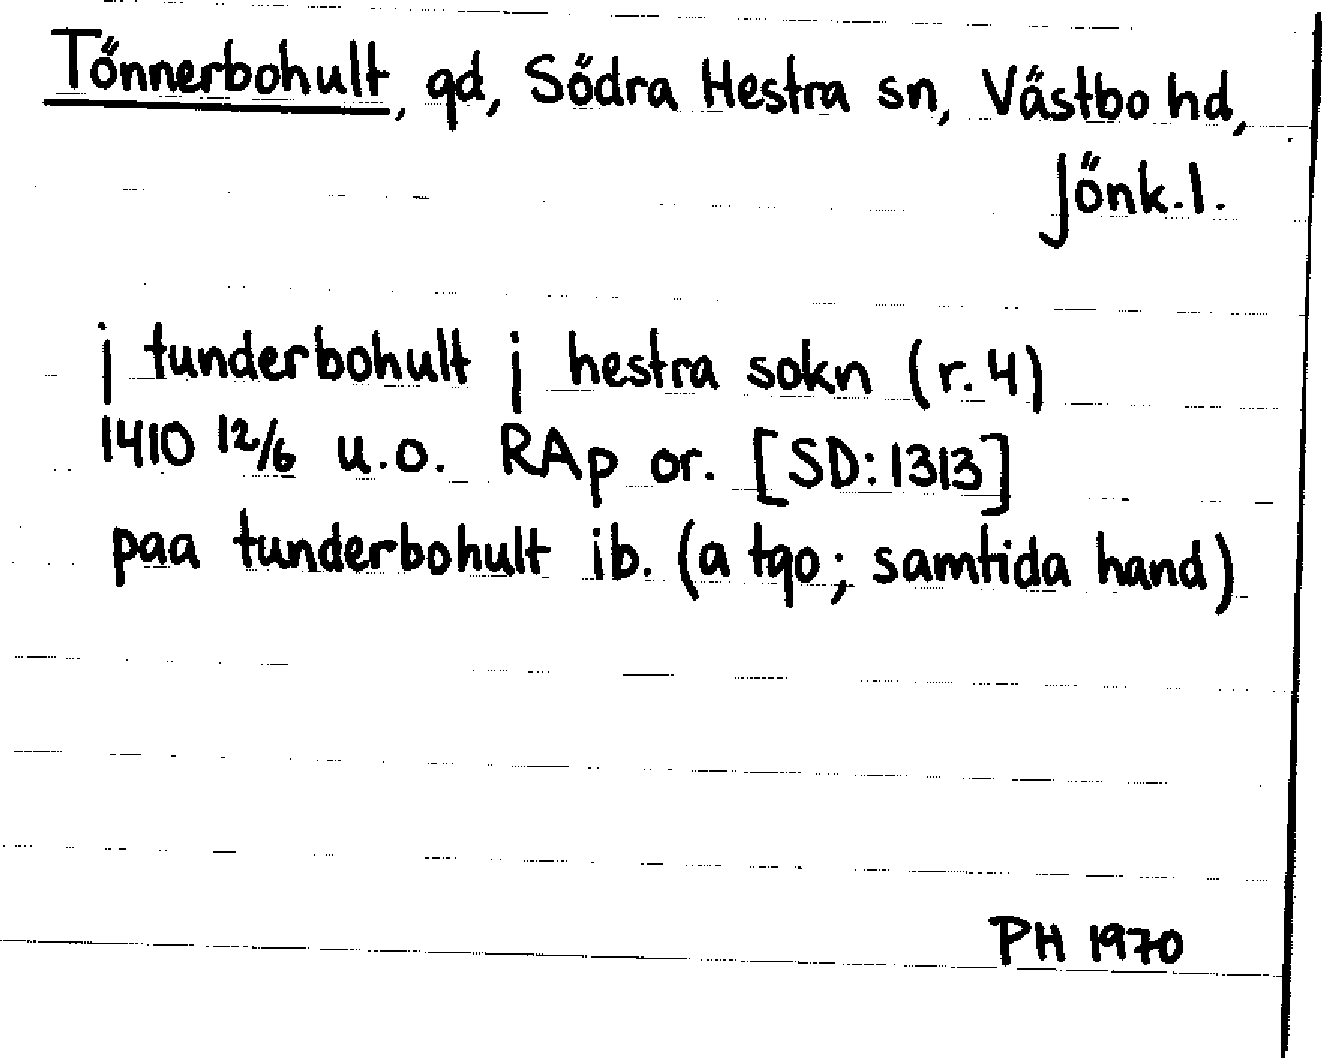 Tönnerbohult, gd, Södra Hestra sn, Västbo hd,
Jönk.l.
j tunderbohult j hestra sokn (r.4)
1410 12/6 u.o. RAp or. [SD:1313]
paa tunderbohult ib. (a tgo; samtida hand)
PH 1970